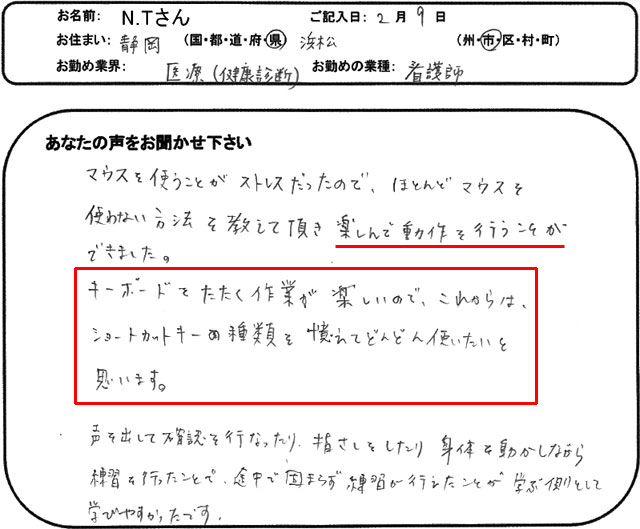 お名前: N.Tさん ご記入日: 2月9日
お住まい: 静岡 (国・都・道・府・県) 浜松 (州・市・区・村・町)
お勤め業界: 医療(健康診断) お勤めの業種: 看護師
あなたの声をお聞かせ下さい
マウスを使うことがストレスだったので、ほとんどマウスを
使わない方法を教えて頂き楽しんで動作を行うことが
できました。
キーボードをたたく作業が楽しいので、これからは、
ショートカットキーの種類を憶えてどんどん使いたいと
思います。
・声を出して確認を行なったり、指さしをしたり身体を動かしながら
練習を行ったことで、途中で固まらず練習が行えたことが学ぶ側として
学びやすかったです。